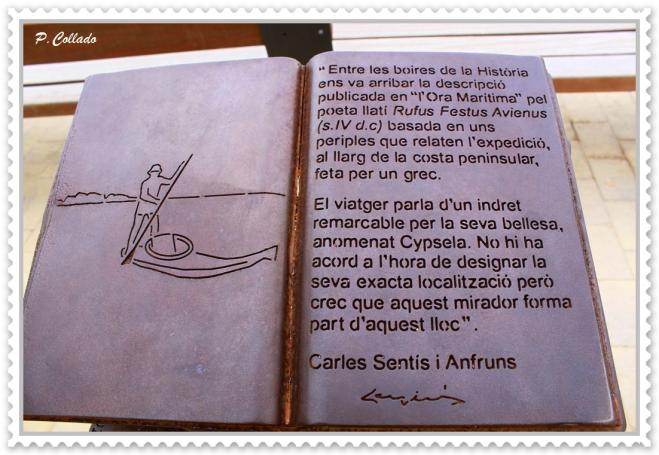 P. Collado
“Entre les boires de la Història
ens va arribar la descripció
publicada en “l'Ora Maritima” pel
poeta llatí Rufus Festus Avienus
(s.IV d.c) basada en uns
periples que relaten l'expedició,
al llarg de la costa peninsular,
feta per un grec.
El viatger parla d'un indret
remarcable per la seva bellesa,
anomenat Cypsela. No hi ha
acord a l'hora de designar la
seva exacta localització però
crec que aquest mirador forma
part d'aquest lloc”.
Carles Sentís i Anfruns